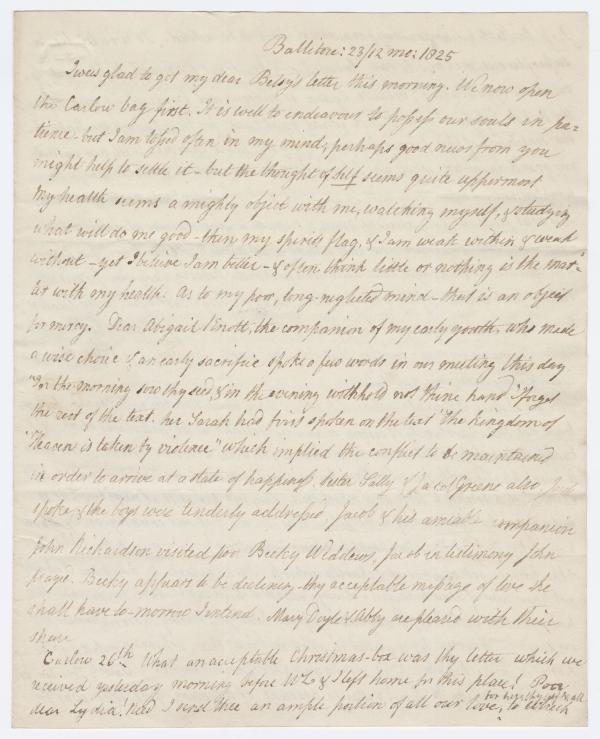 Ballitore: 23/12 mo: 1825
I was glad to get my dear Betsy's letter this morning. We now open
the Carlow bag first. It is well to endeavour to possess our souls in pa=
tience - but I am tossed often in my mind, perhaps good news from you
might help to settle it - but the thought of self seems quite uppermost
My health seems a mighty object with me, watching myself, & studying
what will do me good - then my spirits flag, & I am weak within & weak
without - yet I believe I am better - & often think little or nothing is the mat=
ter with my health. As to my poor, long-neglected mind - that is an object
for mercy. Dear Abigail Knott, the companion of my early youth, who made
a wise choice & an early sacrifice spoke a few words in our meeting this day
"In the morning sow thy seed, & in the evening withhold not thine hand" I forget
the rest of the text. her Sarah had first spoken on the text "The kingdom of
"Heaven is taken by violence" which implied the conflict to be maintained
in order to arrive at a state of happiness. Sister Sally & Jacob Greene also
spoke, & the boys were tenderly addressed Jacob & his amiable companion
John Richardson visited poor Becky Widdows, Jacob in testimony John
prayed. Becky appears to be declining - thy acceptable message of love she
shall have to-morrow I intend. Mary Doyle & Abby are pleased with their
share
Carlow 26th What an acceptable Christmas-box was thy letter which we
received yesterday morning before WL & I left home for this place! Poor
dear Lydia! Need I send thee an ample portion of all our love, to which